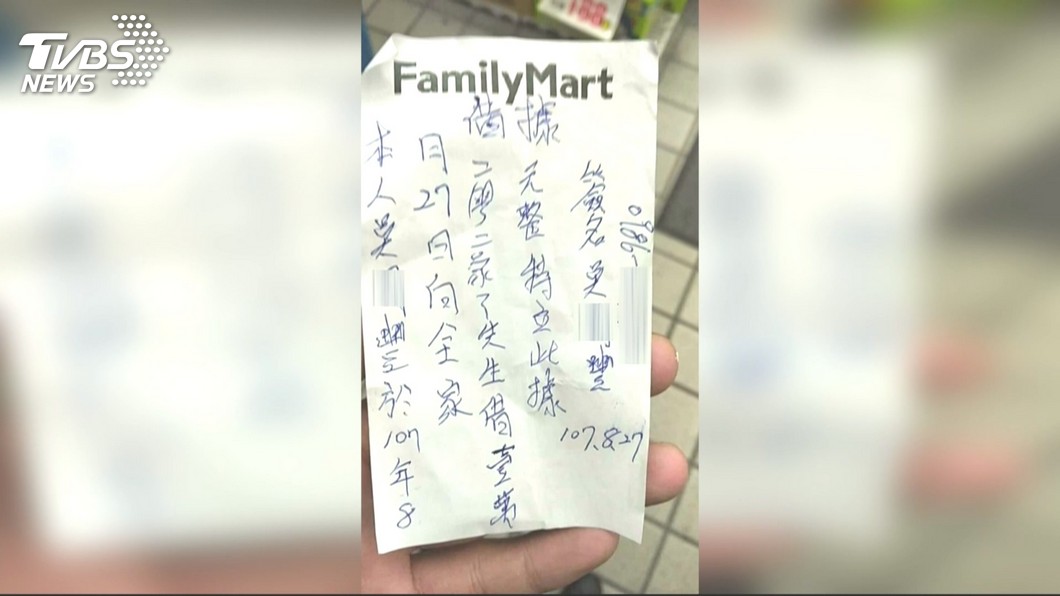 TVBS
NEWS
FamilyMart
借據
本人吳 豐於107年8
月27日向全家
先生借壹萬
元整特立此據
簽名 吳 豐
0986-
107.8.27